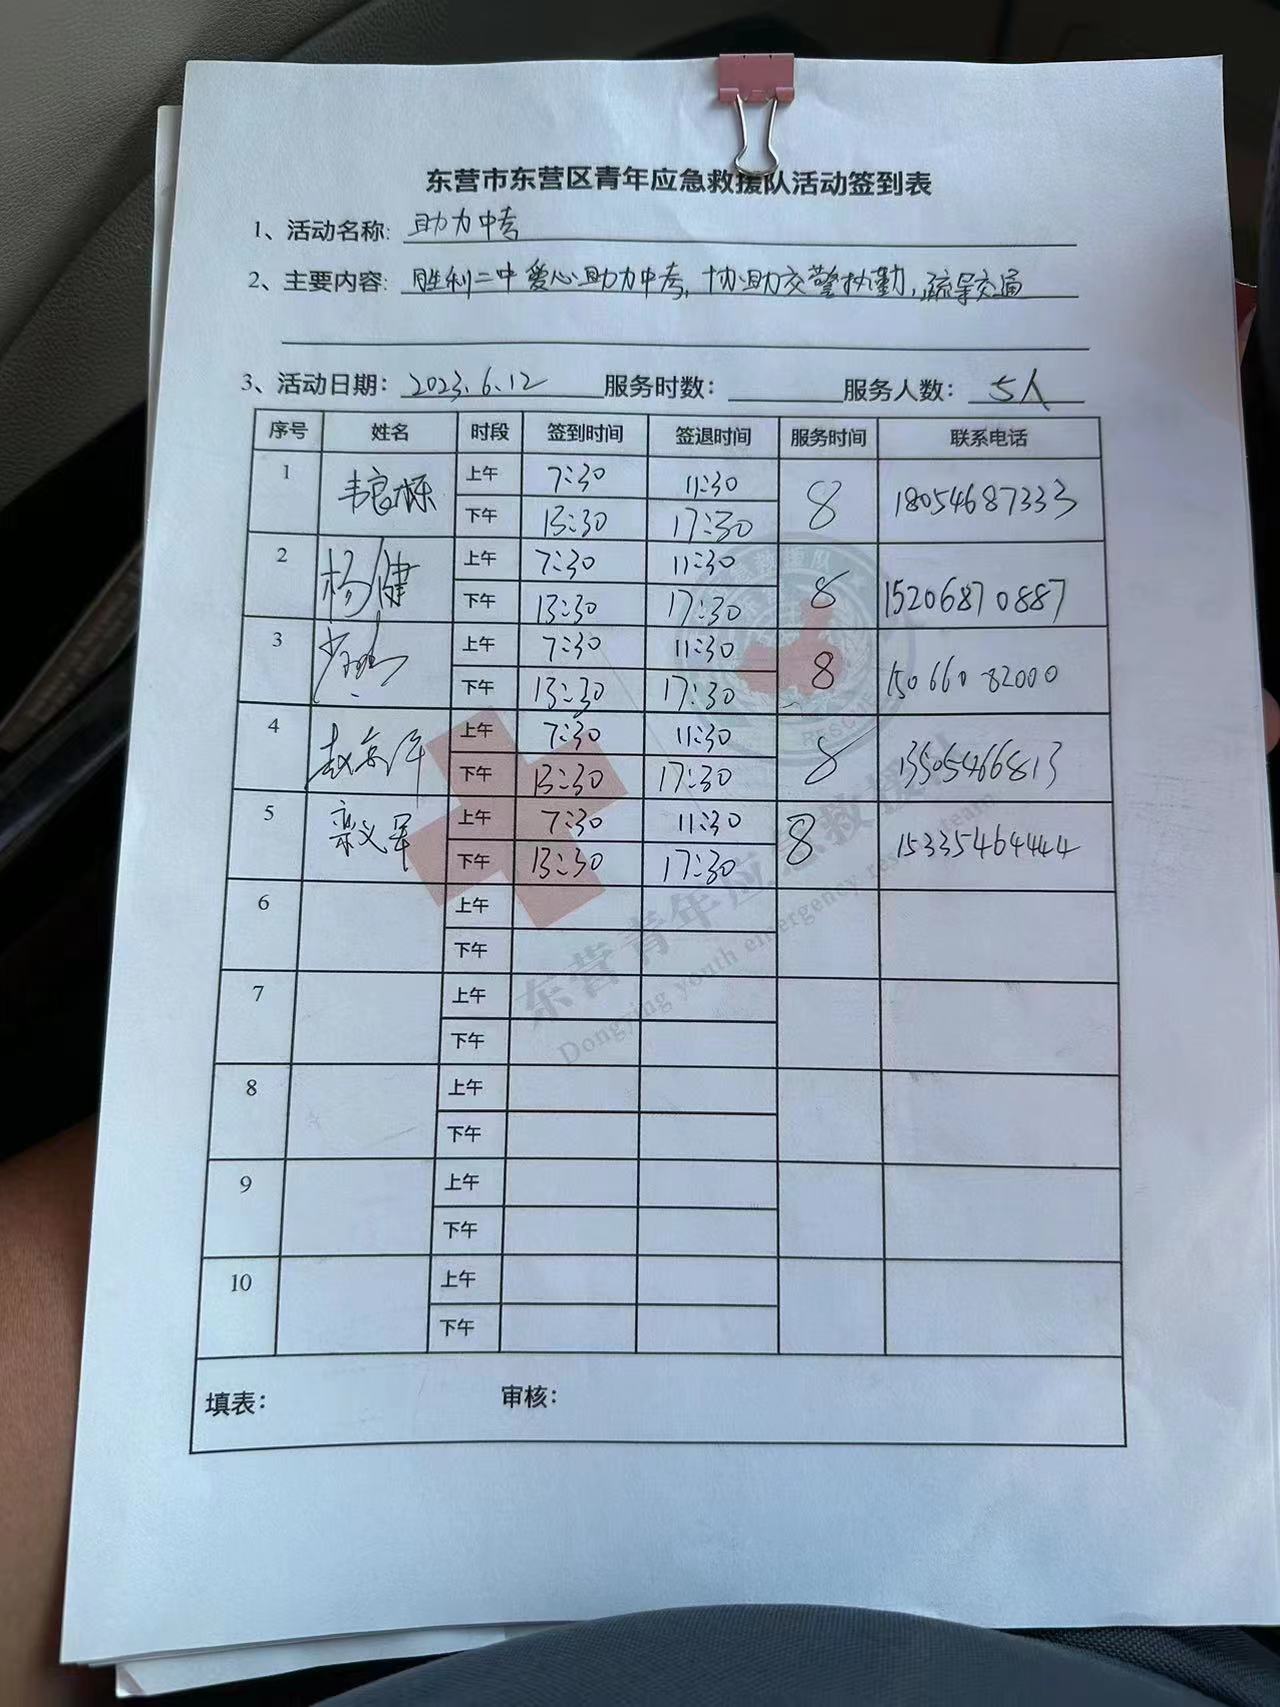 东营市东营区青年应急救援队活动签到表
1、活动名称: 助力中考
2、主要内容: 胜利二中爱心助力中考,协助交警执勤,疏导交通
3、活动日期: 2023.6.12 服务时数: 服务人数: 5人
序号 姓名 时段 签到时间 签退时间 服务时间 联系电话
1 韦良栋 上午 7:30 11:30 8 18054687333
下午 13:30 17:30
2 杨健 上午 7:30 11:30 8 15206870887
下午 13:30 17:30
3 上午 7:30 11:30 8 15066082000
下午 13:30 17:30
4 上午 7:30 11:30 8 13505466813
下午 13:30 17:30
5 栾义军 上午 7:30 11:30 8 15335464444
下午 13:30 17:30
6 上午
下午
7 上午
下午
8 上午
下午
9 上午
下午
10 上午
下午
填表: 审核:
东营青年应急救援队
Dongying youth emergency rescue team